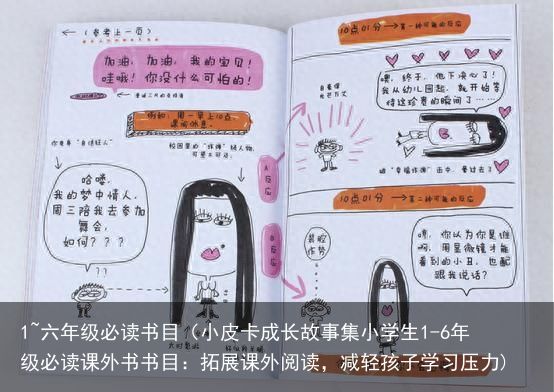 （参考上一页）
加油，加油，我的宝贝！
哇哦！你没什么可怕的！
例如，周一早上10点，
课间休息。
你自己“自信狂人”
校园里的“炸弹”级人物，
哈喽，
我的梦中情人，
周三陪我去参加
舞会，
如何？？？
A反应
B反应
10点01分 → 第一种可能的反应
噢，终于，他下决心了！
我从幼儿园起，就开始等
待这珍贵的瞬间了……
被“幸福炸弹”击中，晕过去了
10点01分 → 第二种可能的反应
装腔
作势
嘿，你以为你是谁
啊，用显微镜才能
看到的小丑，也配
跟我说话？
1~六年级必读书目（小皮卡成长故事集小学生1-6年
级必读课外书书目：拓展课外阅读，减轻孩子学习压力)